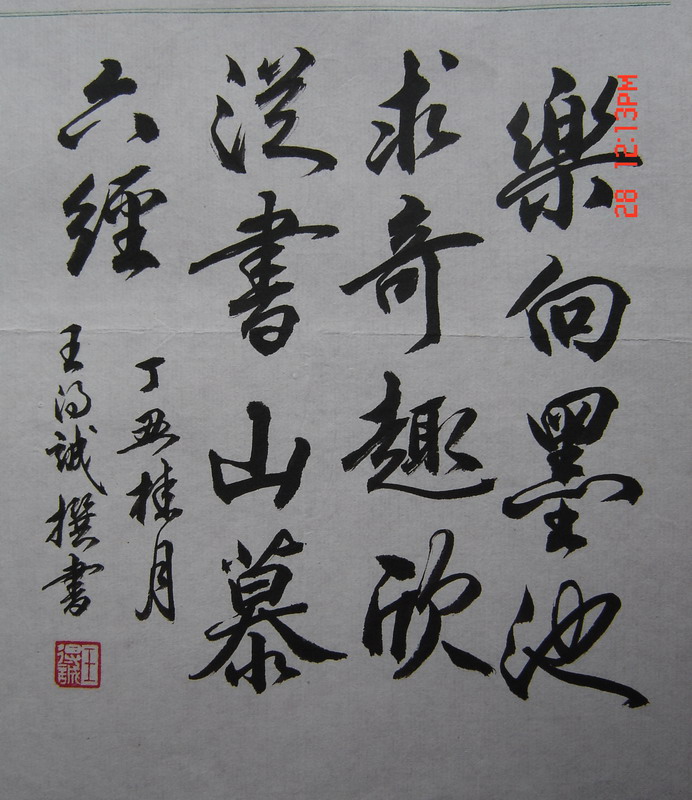 樂向墨池
求奇趣欣
從書山慕
六經
丁丑桂月
王得誠撰書
王得誠
28 12:13PM